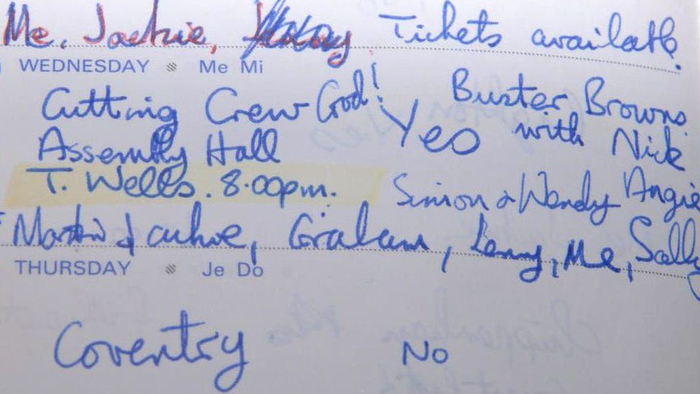 Me, Jackie, Tickets available.
WEDNESDAY Me Mi
Cutting Crew God! Buster Browns
Assembly Hall Yes with Nick
T. Wells. 8.00pm. Simon & Wendy Angie
Martin Jackie, Graham, Lenny, Me, Sally
THURSDAY Je Do
Coventry No